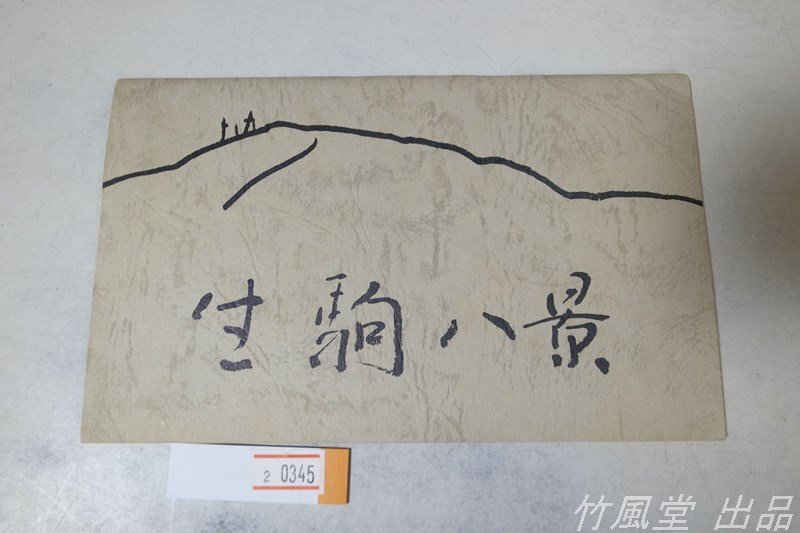 生駒八景
2 0345
竹風堂 出品